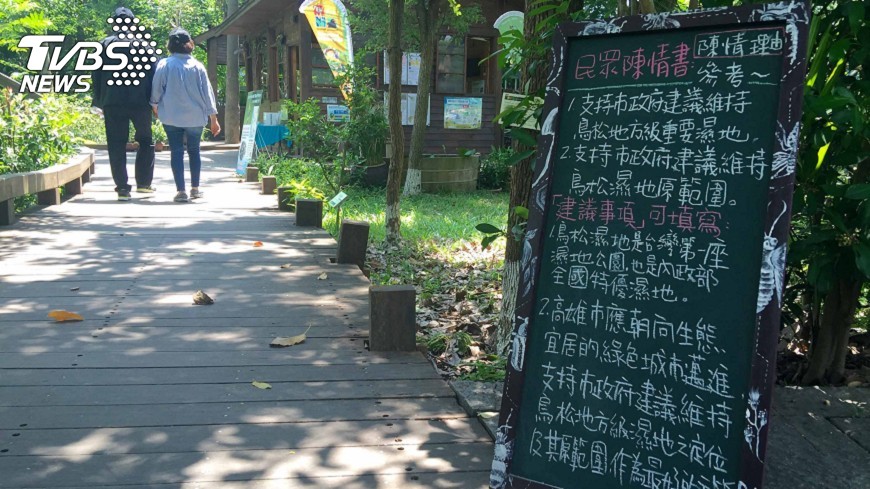 TVBS
NEWS
民眾陳情書 陳情理由
參考~
1.支持市政府建議維持
鳥松地方級重要濕地。
2.支持市政府建議維持
鳥松濕地原範圍。
「建議事項」可填寫
1.鳥松濕地是台灣第一座
濕地公園,也是內政部
全國特優濕地。
2.高雄市應朝向生態、
宜居的綠色城市邁進
支持市政府建議維持
鳥松地方級濕地之定位
及其原範圍作為最好的